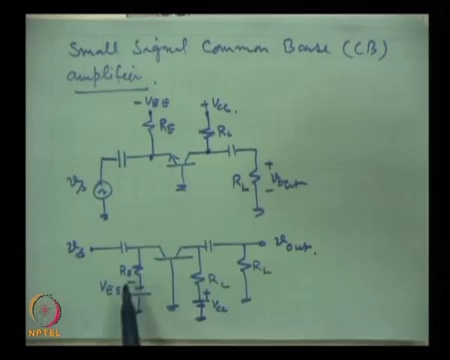 Small Signal Common Base (CB)
amplifier.
-VEE
+VCC.
RE
RC
vs
RL
+
vout
-
vs
vout.
RE
VEE
-
RC
+
VCC
RL
NPTEL